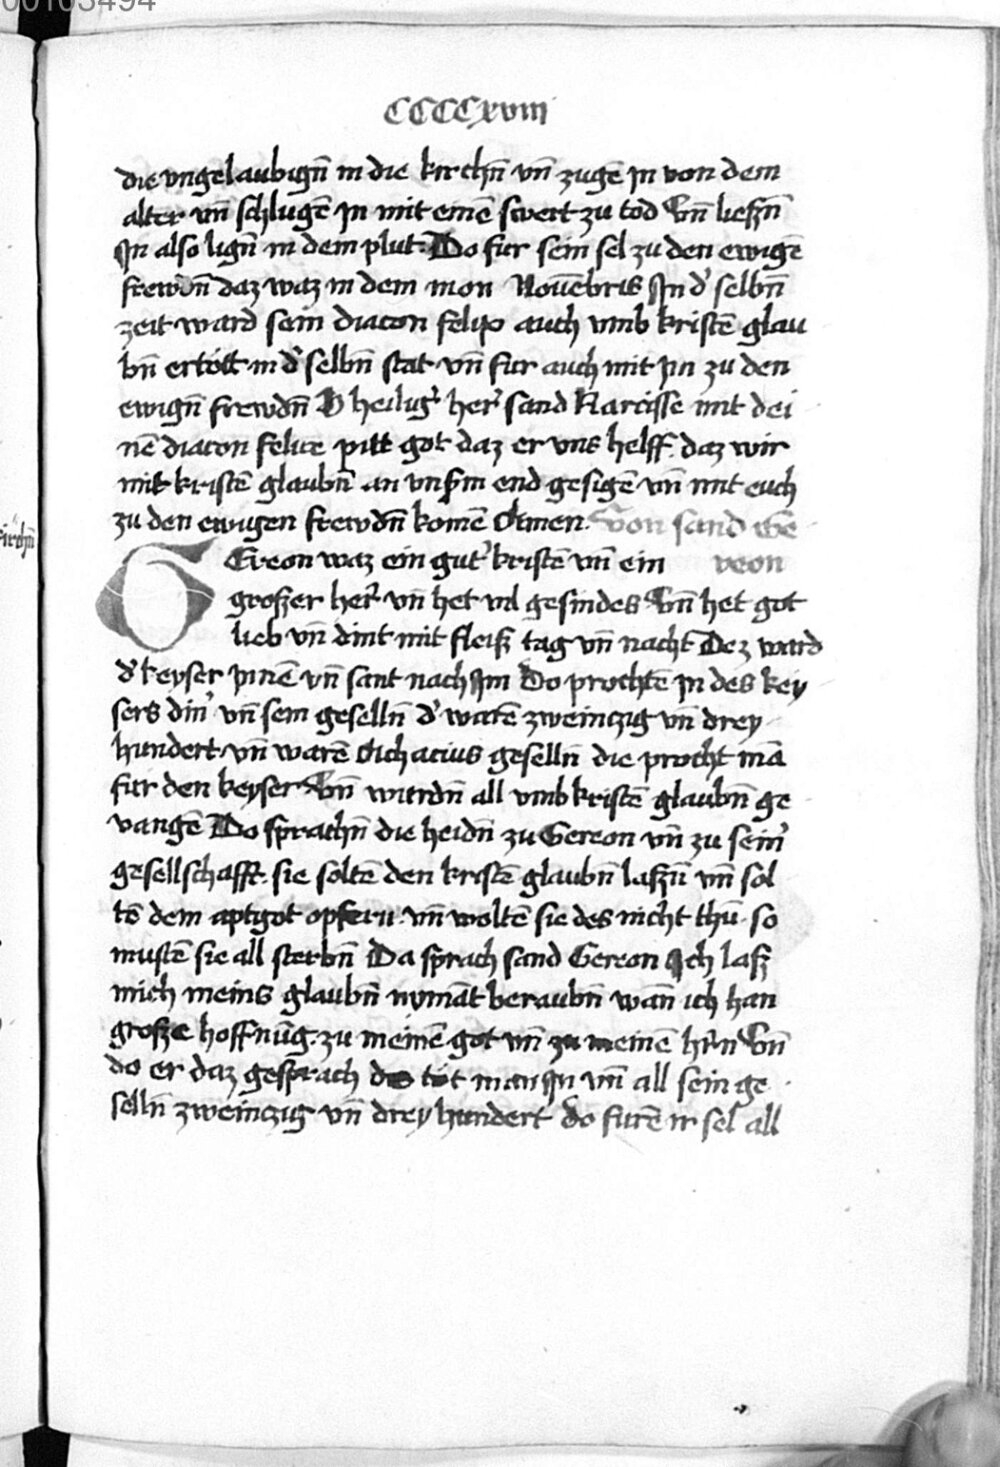 00103494
CCCCxviij
die vngelaubign̄ in die kirchn̄ vn̄ zugē jn von dem
alter vn̄ schlugē jn mit einē swert zu tod Vn̄ lieszn̄
Jn also lign̄ in dem plut Do fur sein sel zu den ewigē
frewdn̄ daz waz in dem mon Nouēbris Jn d' selbn̄
zeit ward sein diacon felix auch vmb kristē glau
bn̄ ertött in d' selbn̄ stat vn̄ fur auch mit jm zu den
ewign̄ frewdn̄ O heilig' her' sand Narcisse mit dei
nē diacon felice pitt got daz er vns helff daz wir
mit kristē glaubn̄ an vnserm end gesigē vn̄ mit euch
zu den ewigen frewdn̄ komē Amen Von sand Ge
GEreon waz ein gut' kristē vn̄ ein reon
groszer her' vn̄ het vil gesindes Vn̄ het got
lieb vn̄ dint mit fleisz tag vn̄ nacht Dez ward
d' keyser jnnē vn̄ sant nach Jm Do prochtē jn des key
sers din' vn̄ sein geselln̄ d' warē zweinczig vn̄ drey
hundert vn̄ warē Achacius geselln̄ die procht mā
fur den keyser Vn̄ wurdn̄ all vmb kristē glaubn̄ ge
vangē Do sprachn̄ die heidn̄ zu Gereon vn̄ zu sein'
gesellschafft sie soltē den kristē glaubn̄ laszn̄ vn̄ sol
tē dem aptgot opfern vn̄ woltē sie des nicht thū so
mustē sie all sterbn̄ Da sprach sand Gereon Ich lasz
mich meins glaubn̄ nymāt beraubn̄ wan̄ ich han
grosze hoffnūg zu meinē got vn̄ zu meinē hr'n Vn̄
do er daz gesprach do töt man Jn vn̄ all sein ge
selln̄ zweinczig vn̄ drey hundert do furē ir sel all